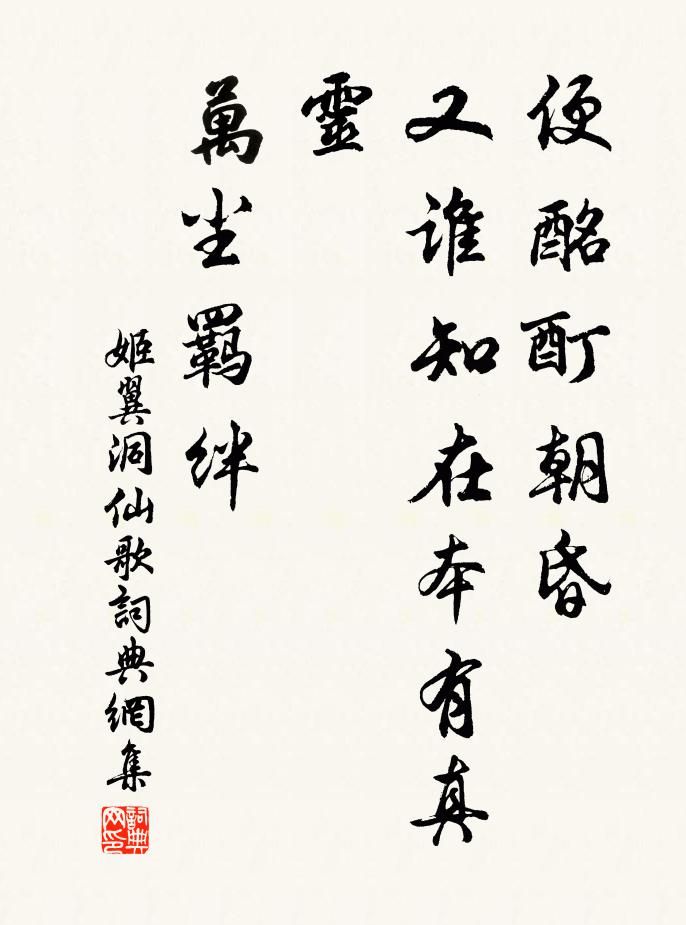 便酩酊朝昏
又谁知在本有真
靈
萬尘羈絆
姬翼洞仙歌詞典網集
詞典网印